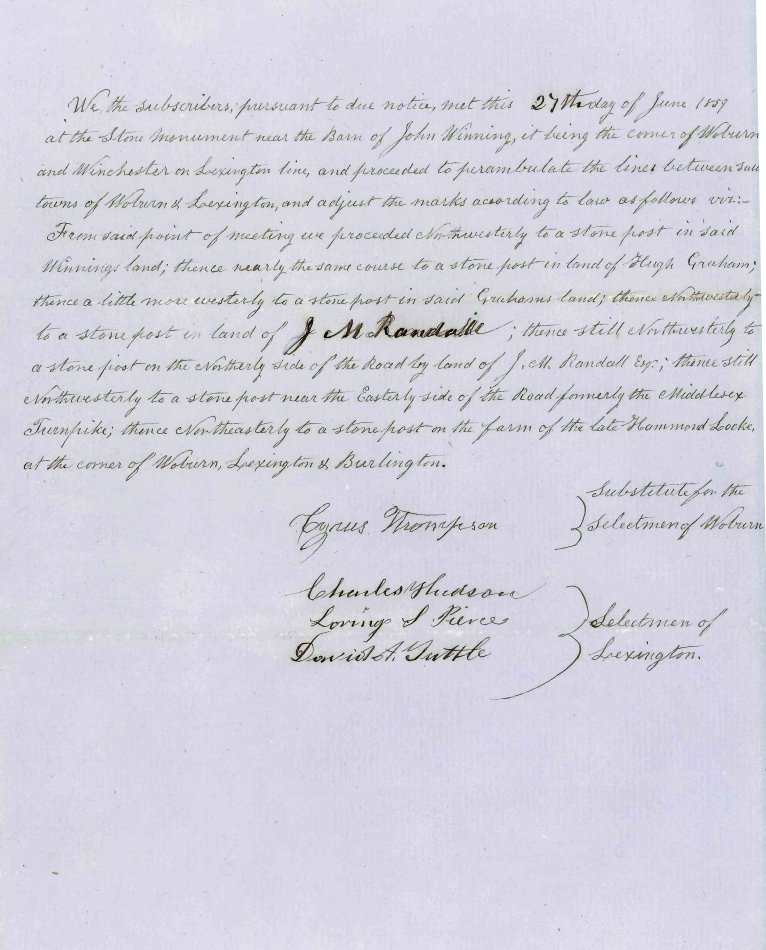 We, the subscribers, pursuant to due notice, met this 27th day of June 1859
at the Stone Monument near the Barn of John Winning, it being the corner of Woburn
and Winchester on Lexington line, and proceeded to perambulate the lines between said
towns of Woburn & Lexington, and adjust the marks according to law as follows viz:-
From said point of meeting we proceeded Northwesterly to a stone post in said
Winnings land; thence nearly the same course to a stone post in land of Hugh Graham;
thence a little more westerly to a stone post in said Grahams land; thence Northwesterly
to a stone post in land of J M Randall ; thence still Northwesterly to
a stone post on the Northerly side of the Road by land of J. M. Randall Esq.; thence still
Northwesterly to a stone post near the Easterly side of the Road formerly the Middlesex
Turnpike; thence Northeasterly to a stone post on the farm of the late Hammond Locke,
at the corner of Woburn, Lexington & Burlington.
Cyrus Thompson } Substitute for the
Selectmen of Woburn
Charles Hudson
Loring S Pierce
David A. Tuttle
} Selectmen of
Lexington.